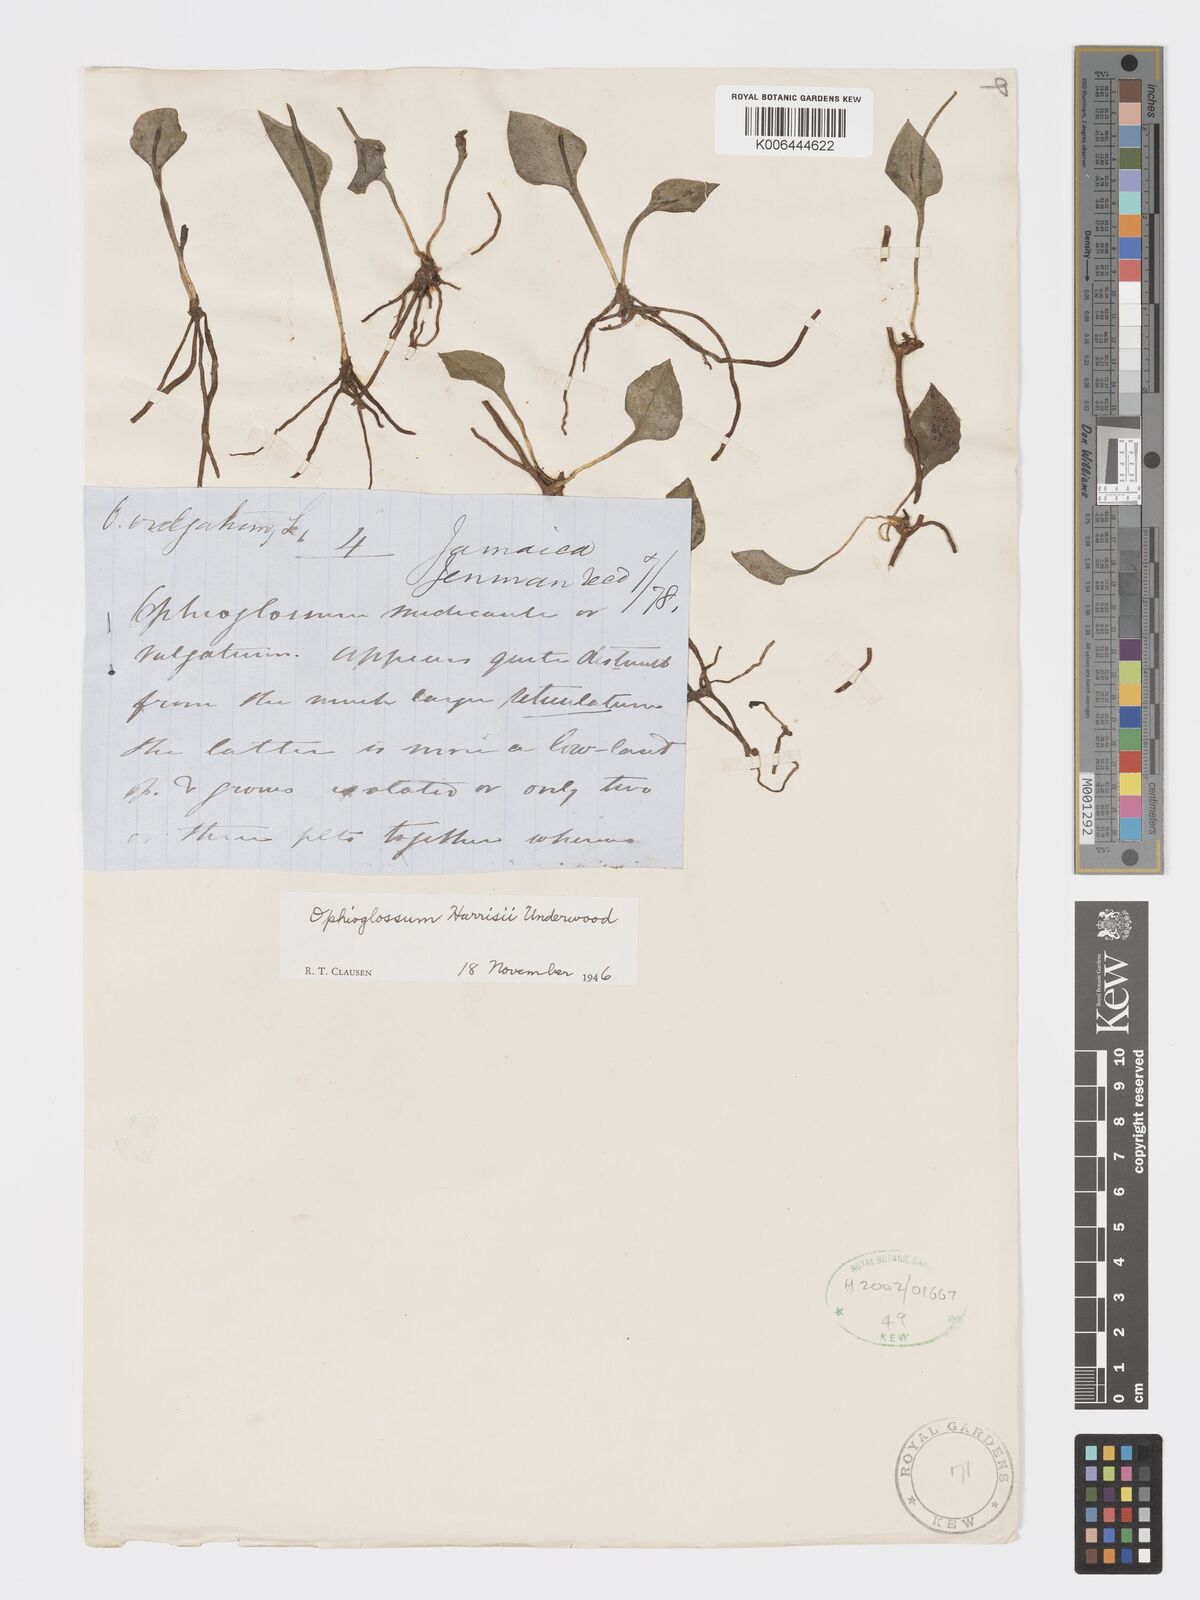 ROYAL BOTANIC GARDENS KEW
K006444622
O. vulgatum, L.
4
Jamaica
Jenman Recd /78.
Ophioglossum nudicaule or
vulgatum. Appears quite distinct
from the much larger reticulatum
the latter is more a low-land
sp. & grows isolated or only two
or three plts together whereas
Ophioglossum Harrisii Underwood
R. T. CLAUSEN 18 November 1946
ROYAL BOTANIC GAR
H 2002/01667
49
KEW
ROYAL GARDENS
171
KEW
inches
centimeters
Density
Don Williams
M001292
Royal Botanic Gardens
Kew
0 1 2 3 4 5 6 7 8 9 10
cm
copyright reserved